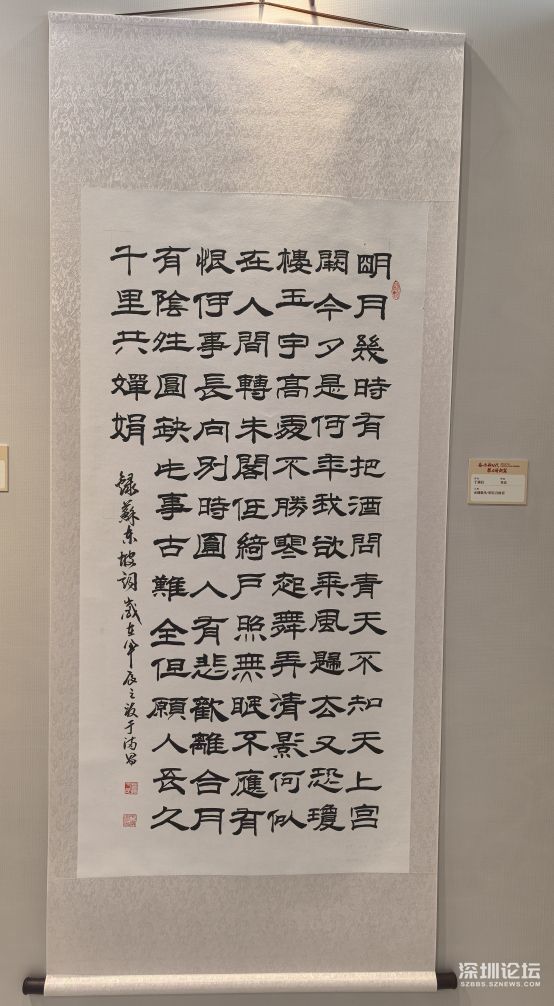 明月幾時有把酒問青天不知天上宮
闕今夕是何年我欲乘風歸去又恐瓊
樓玉宇高處不勝寒起舞弄清影何似
在人間轉朱閣低綺戶照無眠不應有
恨伊事長向別時圓人有悲歡離合月
有陰晴圓缺此事古難全但願人長久
千里共嬋娟
錄蘇東坡詞歲在甲辰之于
深圳论坛
SZBBS.SZNEWS.COM